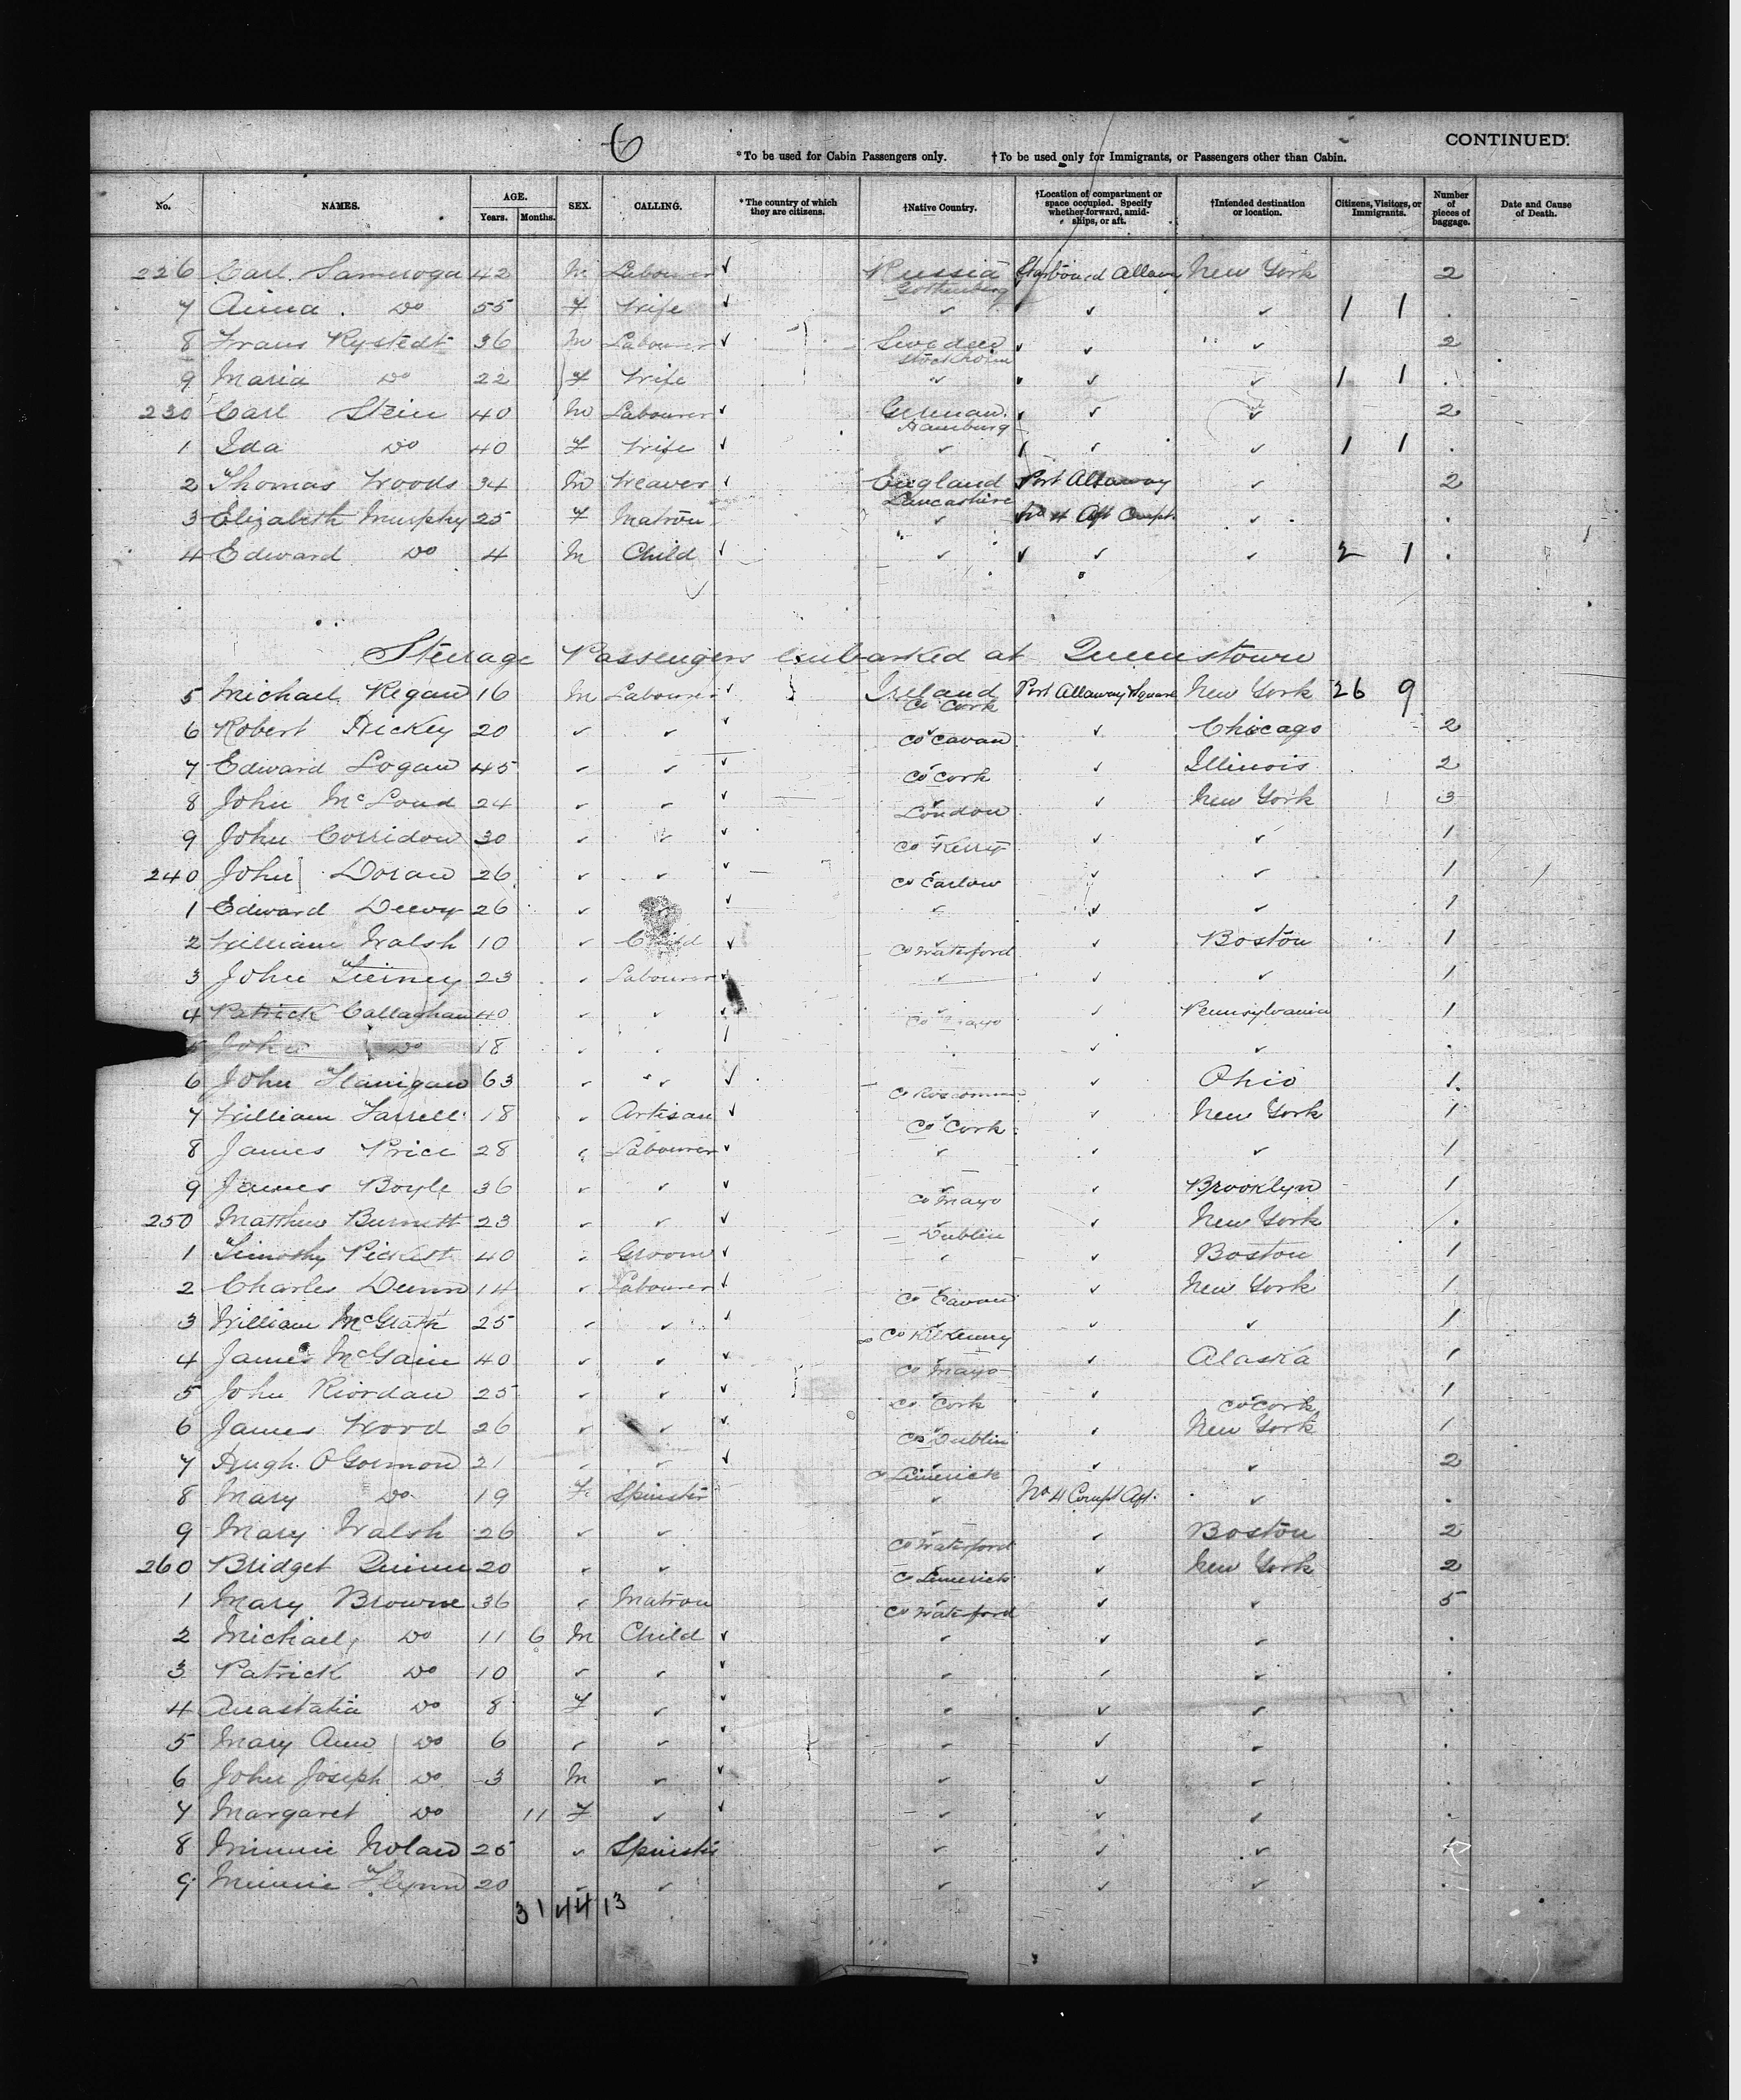 6
CONTINUED.
*To be used for Cabin Passengers only. †To be used only for Immigrants, or Passengers other than Cabin.
No. NAMES. AGE. Years. Months. SEX. CALLING. *The country of which they are citizens. †Native Country. †Location of compartment or space occupied. Specify whether forward, amidships, or aft. †Intended destination or location. Citizens, Visitors, or Immigrants. Number of pieces of baggage. Date and Cause of Death.
226 Carl 42 M Labourer ✓ Russia Gothenburg New York 2
7 Do 55 F Wife ✓ ✓ ✓ ✓ 1 1 .
8 Frans Rystedt 36 M Labourer ✓ Sweden Stockholm ✓ ✓ 2
9 Maria Do 22 F Wife ✓ ✓ ✓ 1 1 .
230 Carl Stein 40 M Labourer ✓ German. Hamburg ✓ ✓ 2
1 Ida Do 40 F Wife ✓ ✓ ✓ ✓ 1 1 .
2 Thomas Woods 34 M Weaver ✓ England Lancashire Port Allaway ✓ 2
3 Elizabeth Murphy 25 F Matron ✓ No 4 Aft Compt. ✓ .
4 Edward Do 4 M Child ✓ ✓ ✓ ✓ 2 1 .
Steerage Passengers embarked at Queenstown
5 Michael Regan 16 M Labourer ✓ Ireland Co Cork Port Allaway Square New York 26 9
6 Robert Hickey 20 ✓ ✓ ✓ Co Cavan ✓ Chicago 2
7 Edward Logan 45 ✓ ✓ ✓ Co Cork ✓ Illinois 2
8 John McLoud 24 ✓ ✓ ✓ London ✓ New York 3
9 John Corridon 30 ✓ ✓ ✓ Co Kerry ✓ ✓ 1
240 John Doran 26 ✓ ✓ ✓ Co Carlow ✓ ✓ 1
1 Edward Deevy 26 ✓ ✓ ✓ ✓ ✓ 1
2 William Walsh 10 ✓ Child ✓ Co Waterford ✓ Boston 1
3 John 23 ✓ Labourer ✓ ✓ ✓ ✓ 1
4 Patrick Callaghan 40 ✓ ✓ ✓ Co Mayo ✓ Pennsylvania 1
5 John Do 18 ✓ ✓ ✓ ✓ .
6 John Flanigan 63 ✓ ✓ ✓ Co Roscommon ✓ Ohio 1
7 William Farrell 18 ✓ Artisan ✓ Co Cork ✓ New York 1
8 James Price 28 ✓ Labourer ✓ ✓ ✓ ✓ 1
9 James Boyle 36 ✓ ✓ ✓ Co Mayo ✓ Brooklyn 1
250 Matthew Burnett 23 ✓ ✓ ✓ Dublin ✓ New York .
1 Timothy Pickett 40 ✓ Groom ✓ ✓ ✓ Boston 1
2 Charles Dunn 14 ✓ Labourer ✓ Co Cavan ✓ New York 1
3 William McGrath 25 ✓ ✓ ✓ Co Kilkenny ✓ ✓ 1
4 James McGain 40 ✓ ✓ ✓ Co Mayo ✓ Alaska 1
5 John Riordan 25 ✓ ✓ ✓ Co Cork ✓ Co Cork 1
6 James Wood 26 ✓ ✓ ✓ Co Dublin ✓ New York 1
7 Hugh O'Gormon 21 ✓ ✓ ✓ Co Limerick ✓ ✓ 2
8 Mary Do 19 F Spinster ✓ No 4 Compt Aft. ✓ .
9 Mary Walsh 26 ✓ ✓ Co Waterford ✓ Boston 2
260 Bridget Quinn 20 ✓ ✓ Co Limerick ✓ New York 2
1 Mary Browne 36 ✓ Matron Co Waterford ✓ ✓ 5
2 Michael Do 11 6 M Child ✓ ✓ ✓ ✓ .
3 Patrick Do 10 ✓ ✓ ✓ ✓ ✓ ✓ .
4 Anastatia Do 8 F ✓ ✓ ✓ ✓ ✓ .
5 Mary Ann Do 6 ✓ ✓ ✓ ✓ ✓ ✓ .
6 John Joseph Do 3 M ✓ ✓ ✓ ✓ ✓ .
7 Margaret Do 11 F ✓ ✓ ✓ ✓ ✓ .
8 Minnie Nolan 25 ✓ Spinster ✓ ✓ ✓
9 Minnie Flynn 20 ✓ ✓ ✓ ✓ ✓ .
31 44 13